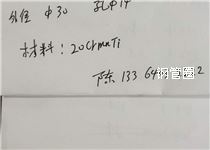 外径 Φ30 孔Φ14
材料：20CrMnTi
陈 133 64 2
钢管圈